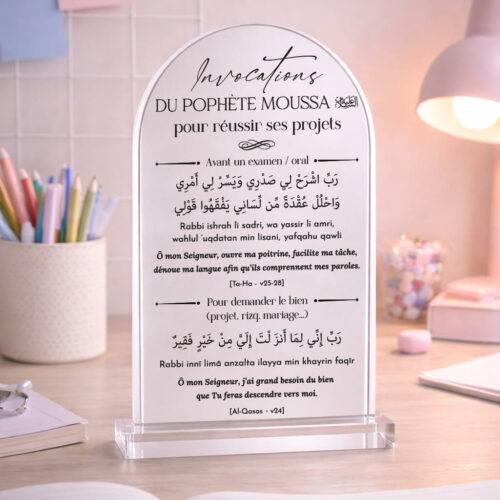 Invocations
DU POPHÈTE MOUSSA
pour réussir ses projets
Avant un examen / oral
رَبِّ اشْرَحْ لِي صَدْرِي وَيَسِّرْ لِي أَمْرِي
وَاحْلُلْ عُقْدَةً مِّن لِّسَانِي يَفْقَهُوا قَوْلِي
Rabbi ishrah li sadri, wa yassir li amri,
wahlul 'uqdatan min lisani, yafqahu qawli
Ô mon Seigneur, ouvre ma poitrine, facilite ma tâche,
dénoue ma langue afin qu'ils comprennent mes paroles.
[Ta-Ha - v25-28]
Pour demander le bien
(projet, rizq, mariage...)
رَبِّ إِنِّي لِمَا أَنزَلْتَ إِلَيَّ مِنْ خَيْرٍ فَقِيرٌ
Rabbi innî limâ anzalta ilayya min khayrin faqîr
Ô mon Seigneur, j'ai grand besoin du bien
que Tu feras descendre vers moi.
[Al-Qasas - v24]